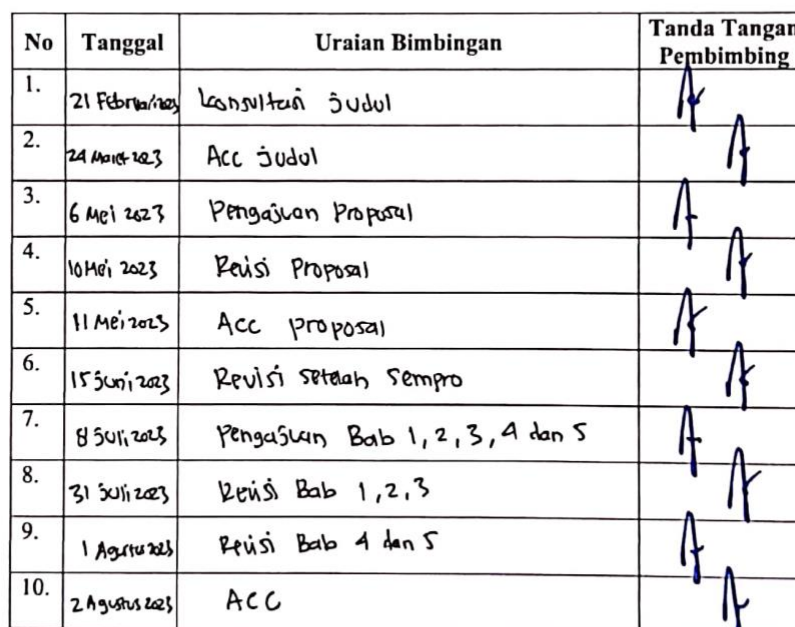 No Tanggal Uraian Bimbingan Tanda Tangan
Pembimbing
1. 21 Februari 2023 Konsultasi judul
2. 24 Maret 2023 Acc judul
3. 6 Mei 2023 Pengajuan Proposal
4. 10 Mei 2023 Revisi Proposal
5. 11 Mei 2023 Acc proposal
6. 15 juni 2023 Revisi setelah sempro
7. 8 juli 2023 Pengajuan Bab 1, 2, 3, 4 dan 5
8. 31 juli 2023 Revisi Bab 1, 2, 3
9. 1 Agustus 2023 Revisi Bab 4 dan 5
10. 2 Agustus 2023 ACC